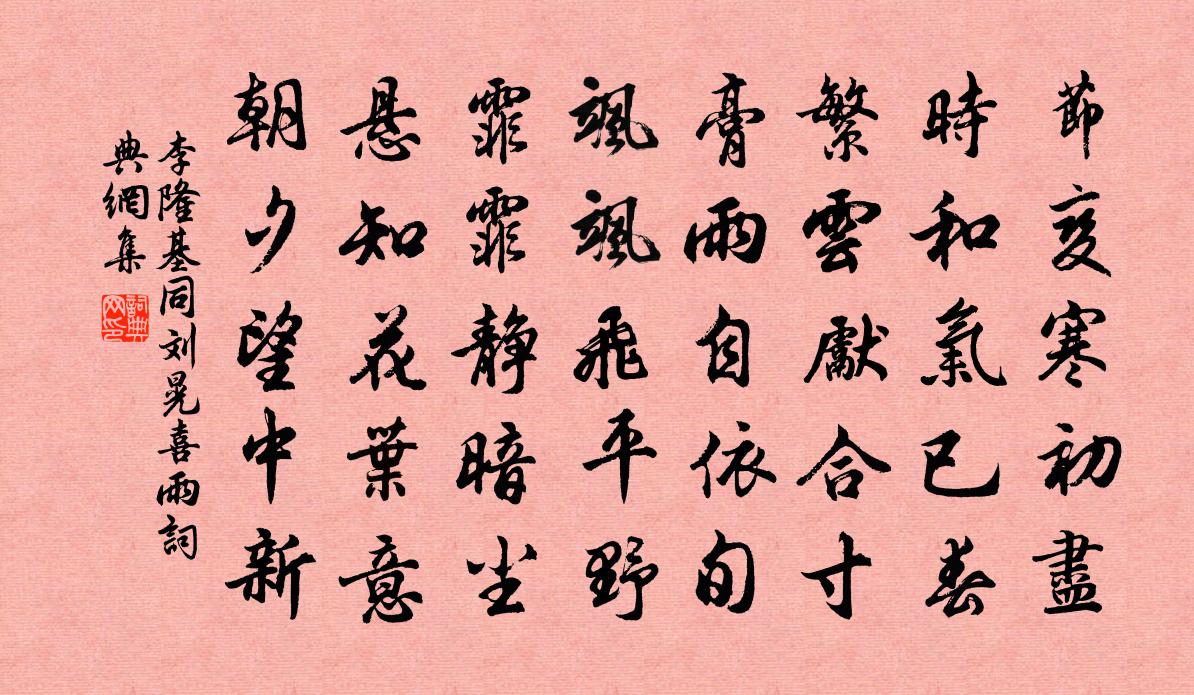 節变寒初盡
時和氣已春
繁雲獻合寸
膏雨自依旬
颯颯飛平野
霏霏静暗尘
悬知花葉意
朝夕望中新
李隆基同刘晃喜雨詞
典網集
詞典
网印